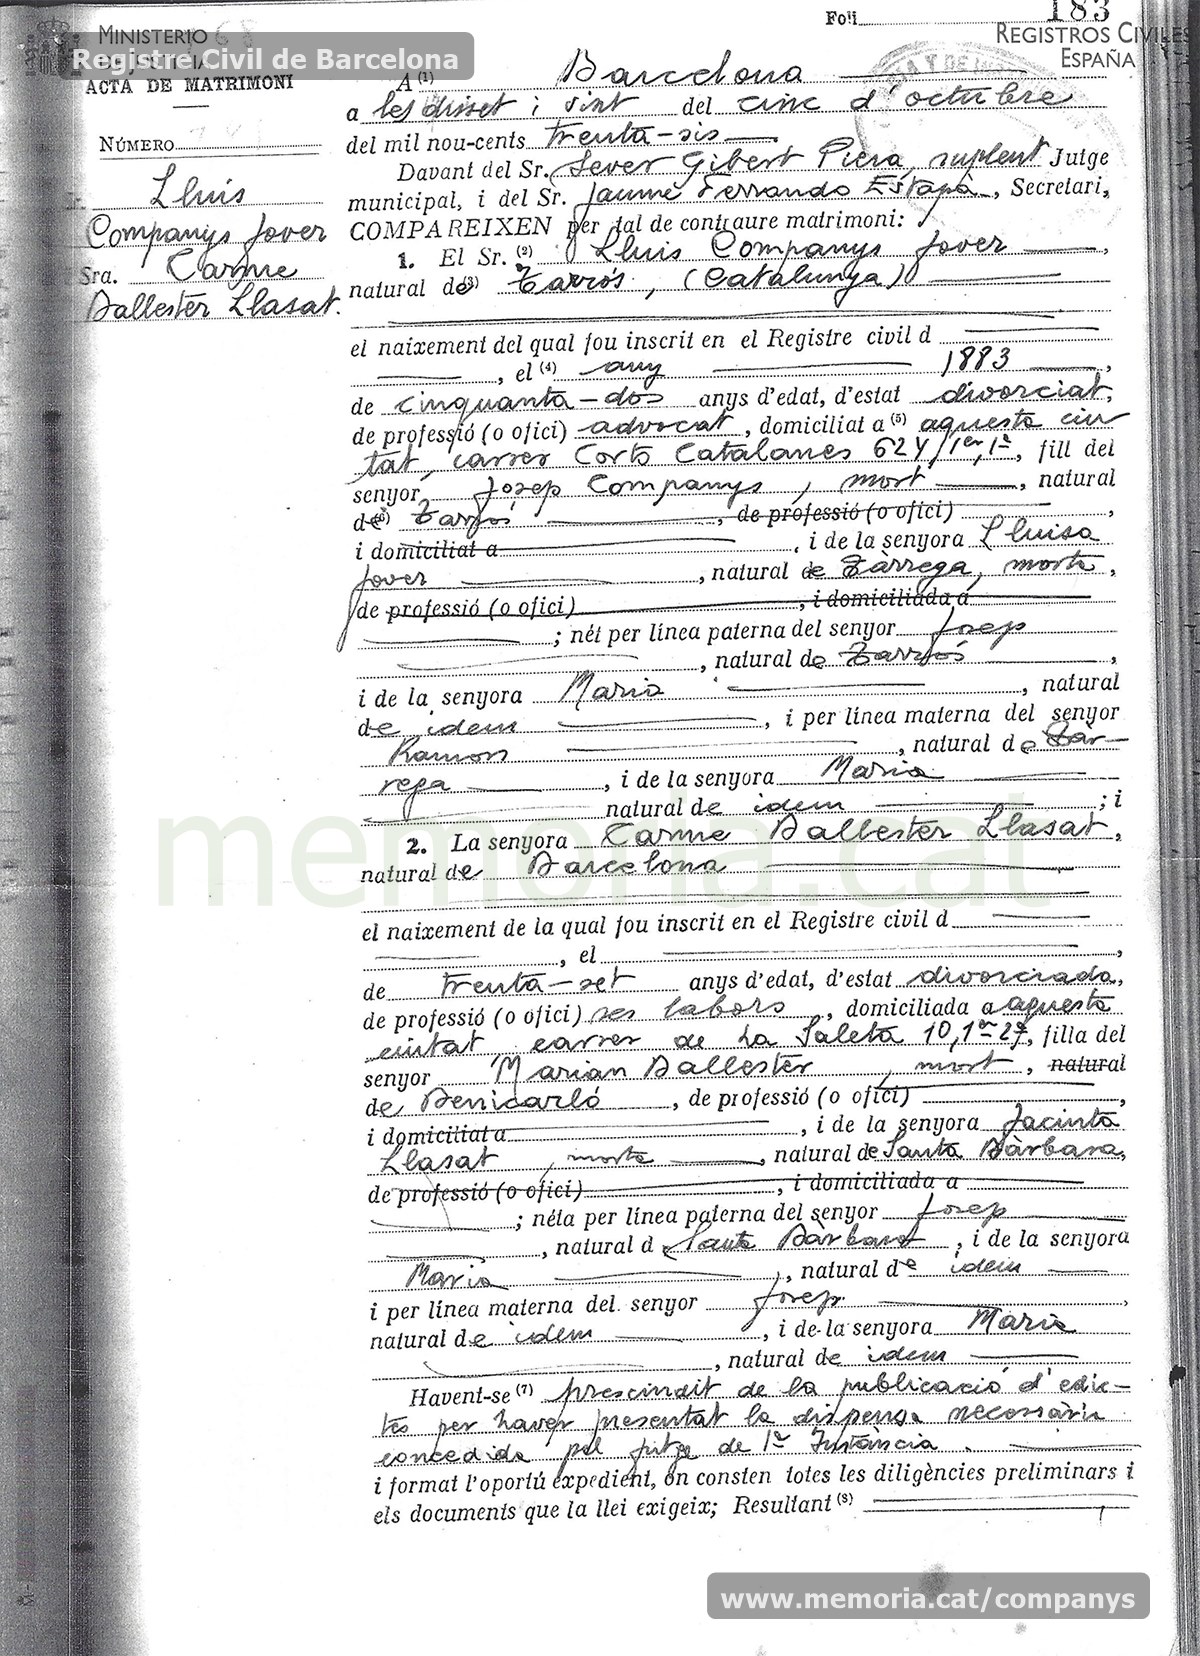 Foli 183
MINISTERIO
REGISTROS CIVILES
ESPAÑA
Registre Civil de Barcelona
ACTA DE MATRIMONI
NÚMERO
Lluis
Companys Jover
Sra. Carme
Ballester Llasat.
A (1) Barcelona
a les disset i vint del cinc d'octubre
del mil nou-cents trenta-sis
Davant del Sr. Sever Gibert Piera, suplent Jutge
municipal, i del Sr. Jaume Ferrando Estapà, Secretari,
COMPAREIXEN per tal de contraure matrimoni:
1. El Sr. (2) Lluis Companys Jover,
natural de (3) Tarrós, (Catalunya)
el naixement del qual fou inscrit en el Registre civil d
, el (4) any 1883,
de cinquanta-dos anys d'edat, d'estat divorciat,
de professió (o ofici) advocat, domiciliat a (5) aquesta ciu
tat, carrer Corts Catalanes 624, 1er, 1ª, fill del
senyor Josep Companys, mort, natural
de (6) Tarrós, de professió (o ofici)
i domiciliat a, i de la senyora Lluisa
Jover, natural de Tàrrega, morta,
de professió (o ofici), i domiciliada a
; nét per línea paterna del senyor Josep
, natural de Tarrós,
i de la senyora Maria, natural
de idem, i per línea materna del senyor
Ramon, natural de Tàr-
rega, i de la senyora Maria
natural de idem; i
2. La senyora Carme Ballester Llasat,
natural de Barcelona
memoria.cat
el naixement de la qual fou inscrit en el Registre civil d
, el,
de trenta-set anys d'edat, d'estat divorciada,
de professió (o ofici) ses labors, domiciliada a aquesta
ciutat carrer de La Saleta 10, 1er 2ª, filla del
senyor Marian Ballester, mort, natural
de Benicarló, de professió (o ofici),
i domiciliat a, i de la senyora Jacinta
Llasat, morta, natural de Santa Bàrbara,
de professió (o ofici), i domiciliada a
; néta per línea paterna del senyor Josep
, natural de Santa Bàrbara, i de la senyora
Maria, natural de idem
i per línea materna del senyor Josep,
natural de idem, i de la senyora Maria
, natural de idem
Havent-se (7) prescindit de la publicació d'edic-
tes per haver presentat la dispensa necessària
concedida pel jutge de 1ª Instància.
i format l'oportú expedient, on consten totes les diligències preliminars i
els documents que la llei exigeix; Resultant (8)
www.memoria.cat/companys